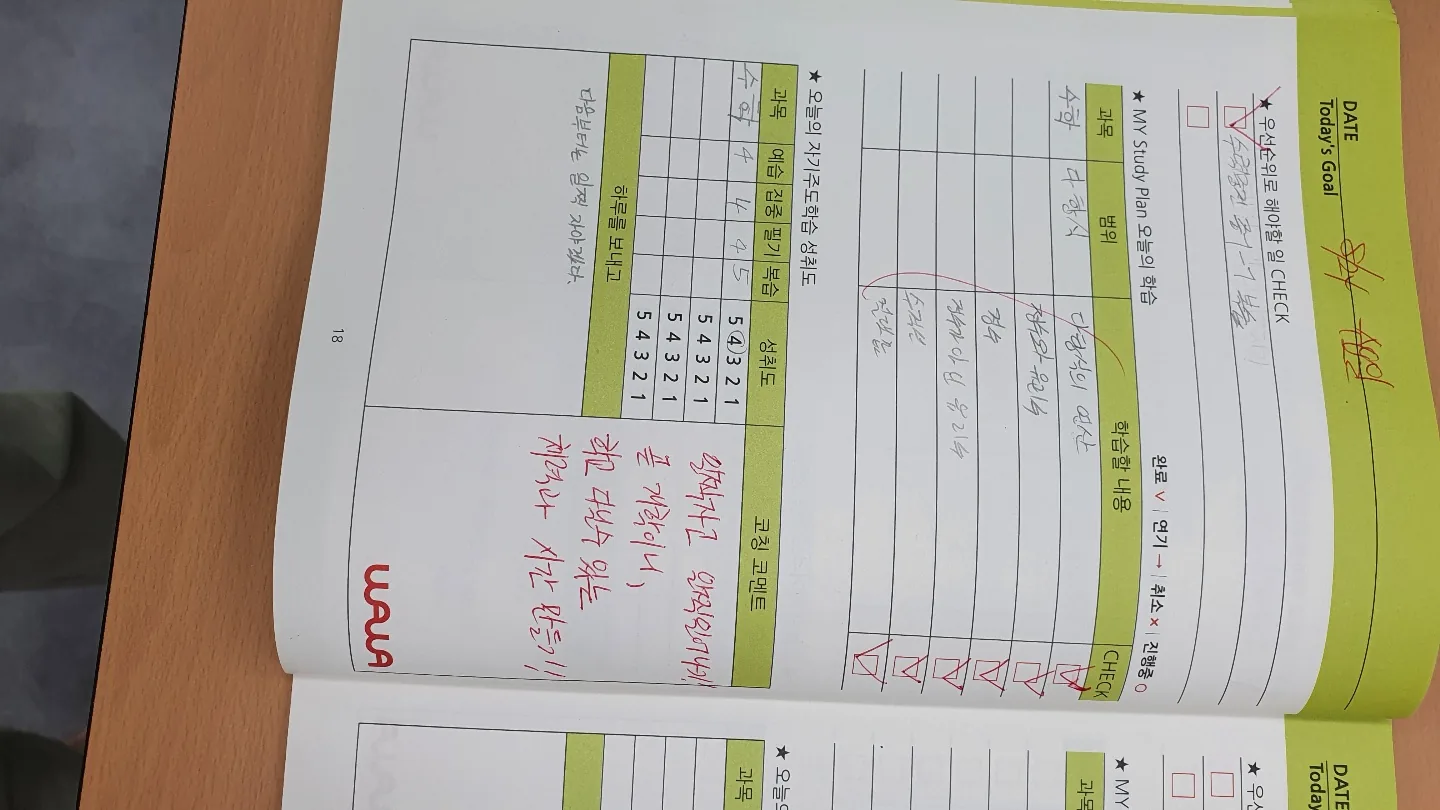 DATE 8/21
Today's Goal
★ 우선순위로 해야할 일 CHECK
★ MY Study Plan 오늘의 학습
완료 ∨ | 연기 → | 취소 × | 진행중 ○
과목 범위 학습할 내용 CHECK
수학 다항식 다항식의 연산
정수와 유리수
정수
정수가 아닌 유리수
수직선
절댓값
★ 오늘의 자기주도학습 성취도
과목 예습 집중 필기 복습 성취도 코칭 코멘트
수학 4 4 4 5 5 4 3 2 1
5 4 3 2 1
5 4 3 2 1
5 4 3 2 1
하루를 보내고
다음부터는 일찍 자야겠다.
일찍자고 일찍일어나기!
곧 개학이니,
학교 다닐수 있는
체력과 시간 만들기!
wawa
18
DATE
Today
★ 우선
★ MY
과목
★ 오늘의
과목